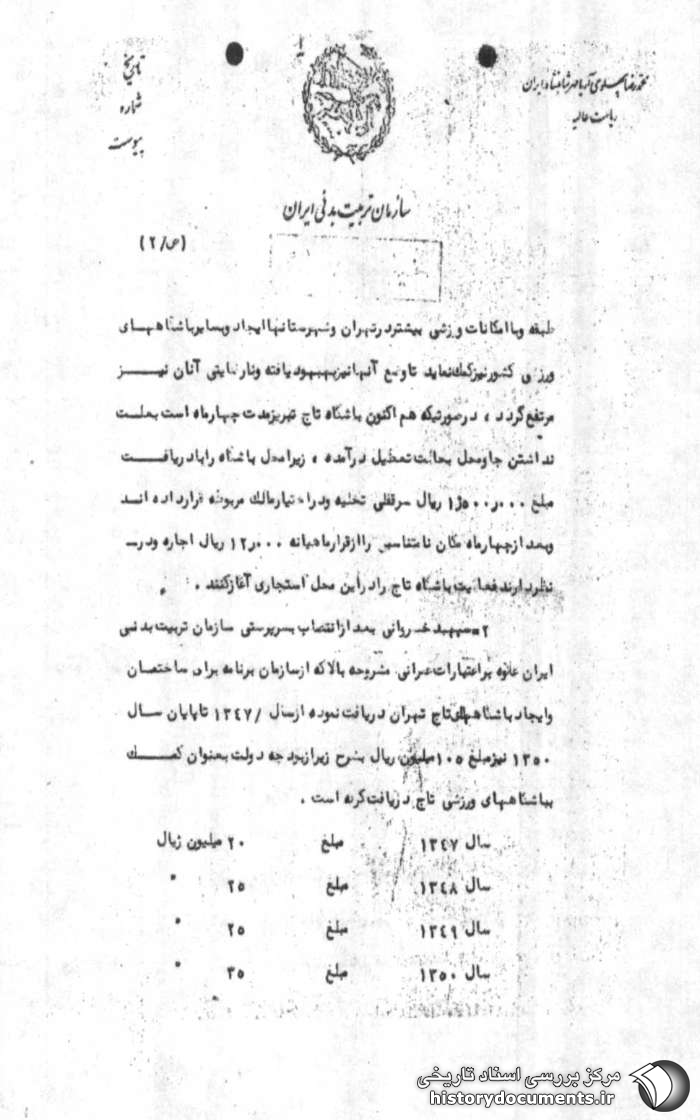 محمدرضا پهلوی آریامهر شاهنشاه ایران
ریاست عالیه
تاریخ
شماره
پیوست
سازمان تربیت بدنی ایران
(ص/۲)
طبقه وباامکانات ورزشی بیشتردرتهران وشهرستانهاایجاد وبسایرباشگاههای
ورزشی کشورنیزکمک نماید تاوضع آنهانیزبهبودیافته ونارضایتی آنان نیز
مرتفع گردد ، درصورتیکه هم اکنون باشگاه تاج تبریزمدت چهارماه است بعلت
نداشتن جاومحل بحالت تعطیل درآمده ، زیرامحل باشگاه راباد ریافت
مبلغ ۱٫۵۰۰٫۰۰۰ ریال سرقفلی تخلیه ودراختیارمالک مربوطه قرارداده اند
وبعد ازچهارماه مکان نامتناسبی راازقرارماهیانه ۱۲٫۰۰۰ ریال اجاره ودر
نظردارند فعالیت باشگاه تاج رادراین محل استیجاری آغازکنند .
۲ـ سپهبد خسروانی بعد ازانتصاب بسرپرستی سازمان تربیت بدنی
ایران علاوه براعتبارات عمرانی مشروحه بالاکه ازسازمان برنامه برای ساختمان
وایجاد باشگاههای تاج تهران دریافت نموده ازسال /۱۳۴۷ تاپایان سال
۱۳۵۰ نیزمبلغ ۱۰۵ میلیون ریال بشرح زیرازبودجه دولت بعنوان کمک
بباشگاههای ورزشی تاج دریافت کرده است .
سال ۱۳۴۷ مبلغ ۲۰ میلیون ریال
سال ۱۳۴۸ مبلغ ۲۵ "
سال ۱۳۴۹ مبلغ ۲۵ "
سال ۱۳۵۰ مبلغ ۳۵ "
مرکز بررسی اسناد تاریخی
historydocuments.ir